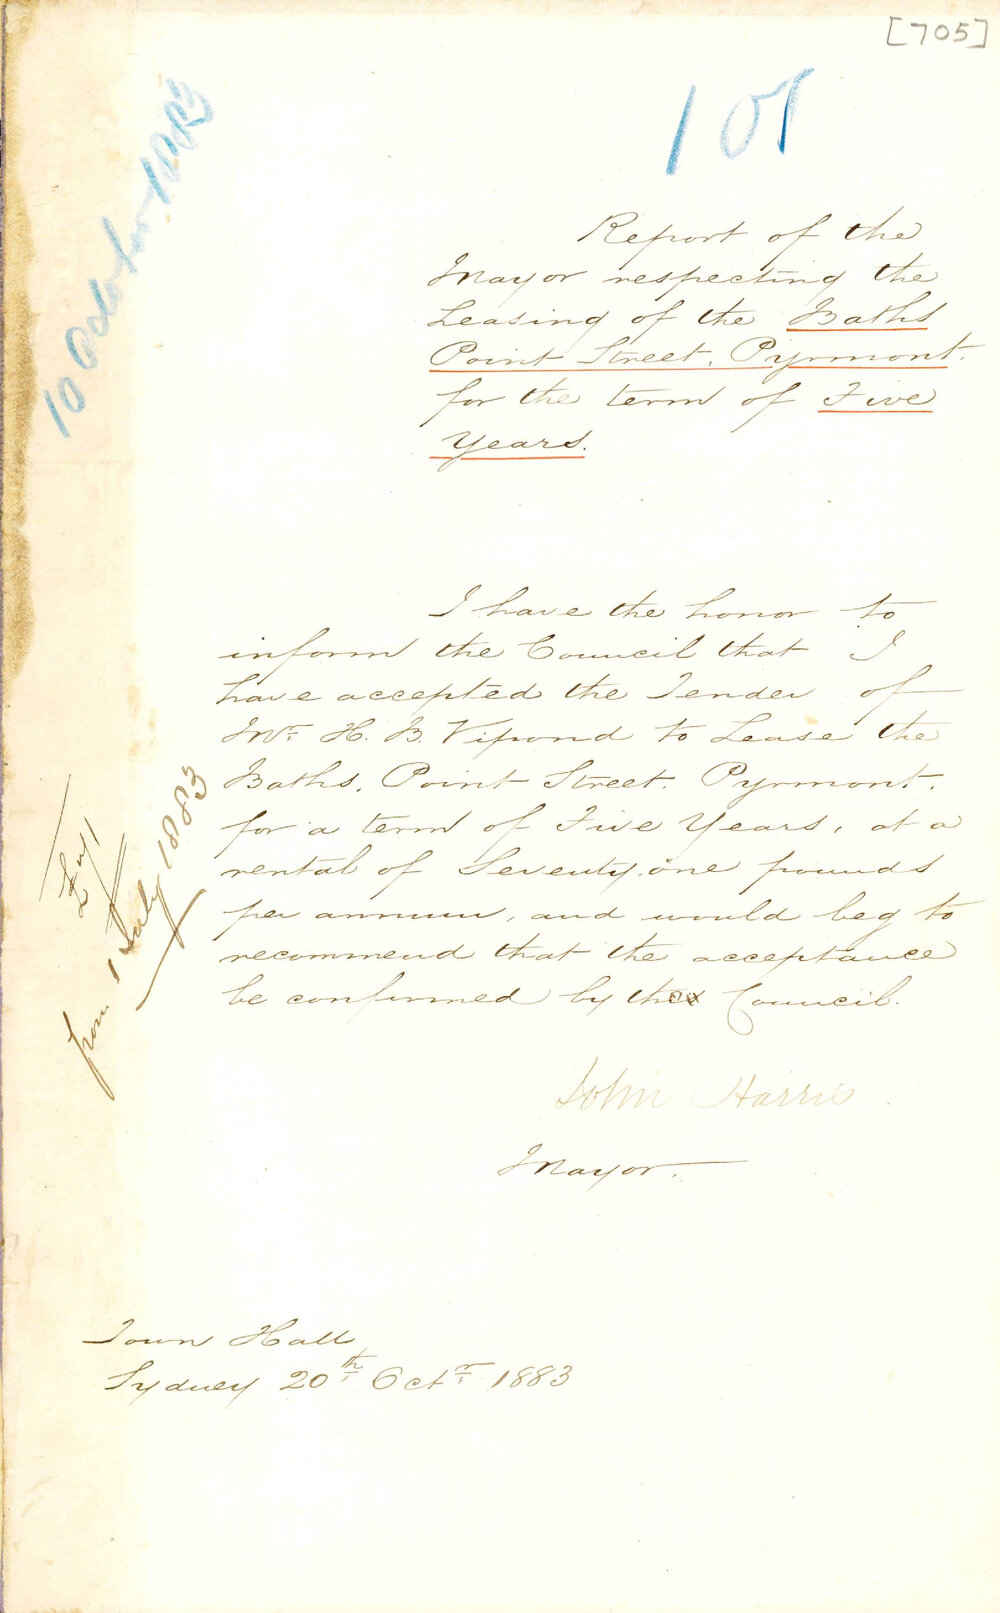 [705]
101
10 October 1883
Report of the
Mayor respecting the
Leasing of the Baths
Point Street, Pyrmont.
for the term of Five
Years.
I have the honor to
inform the Council that I
have accepted the Tender of
Mr. H. B. Vipond to Lease the
Baths, Point Street, Pyrmont,
for a term of Five Years, at a
rental of Seventy one pounds
per annum, and would beg to
recommend that the acceptance
be confirmed by the Council.
£71
from 1 July 1883
John Harris
Mayor.
Town Hall
Sydney 20th Octr 1883